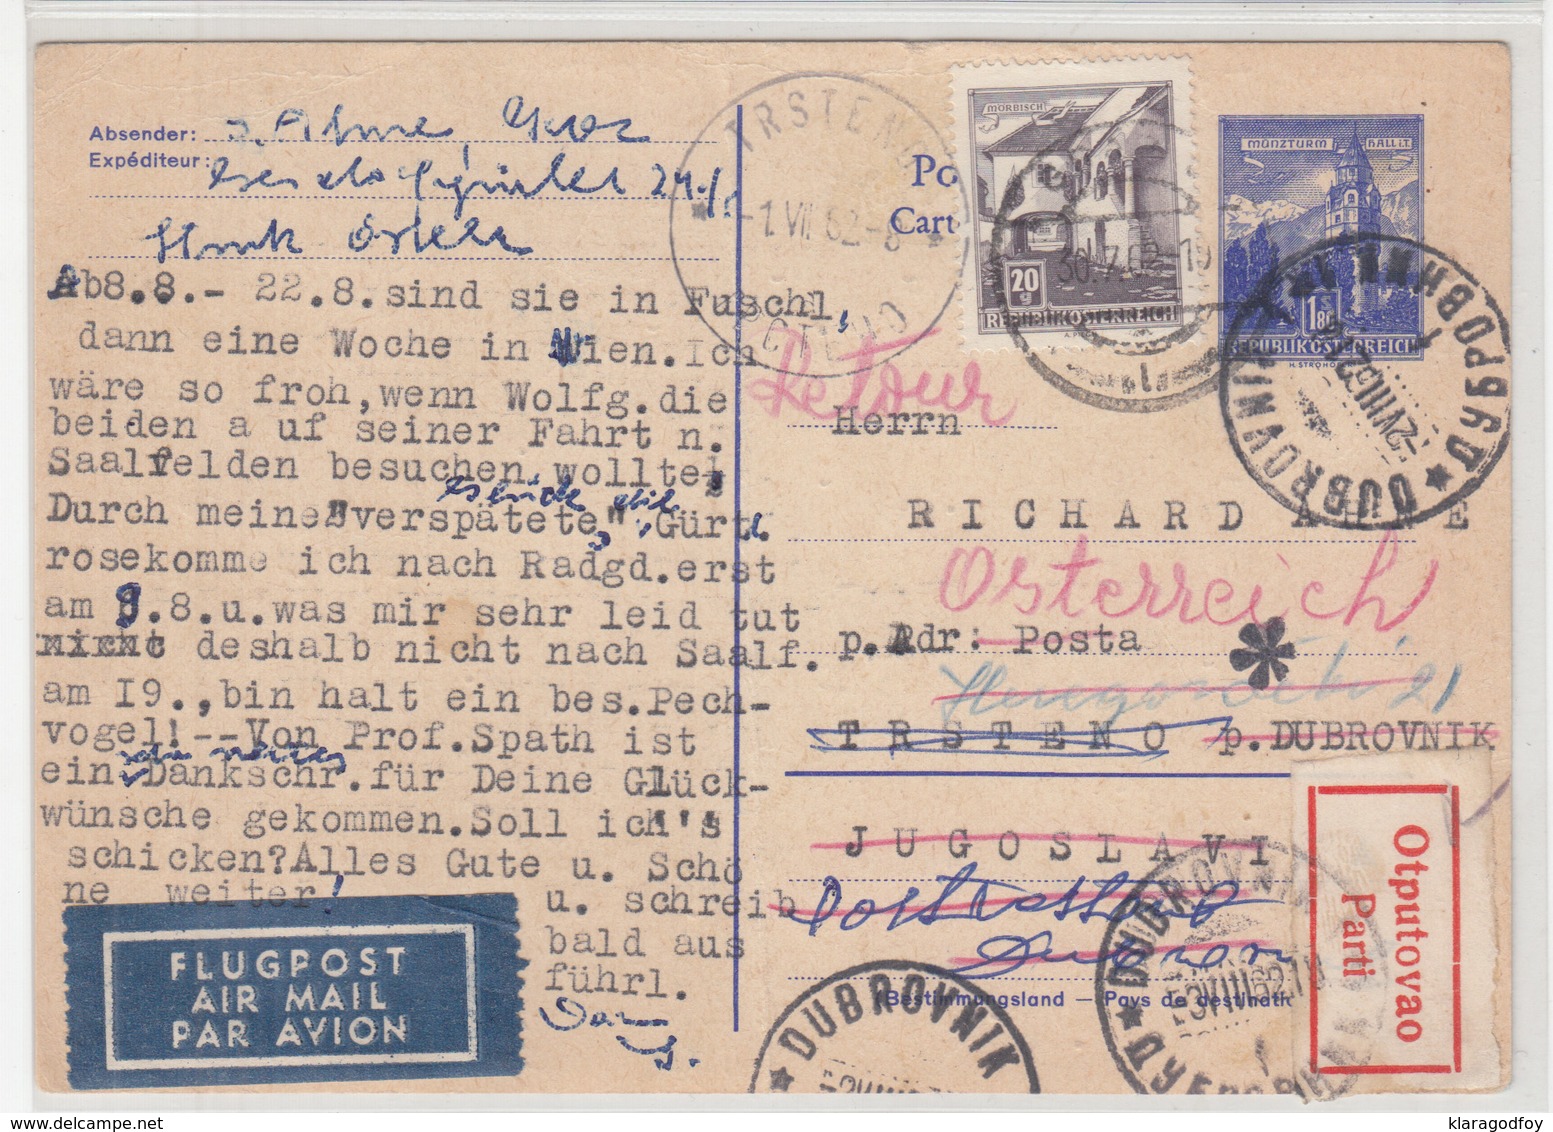 Absender:
Expéditeur:
Ab8.8.- 22.8.sind sie in Fuschl,
dann eine Woche in Wien.Ich
wäre so froh,wenn Wolfg.die
beiden a uf seiner Fahrt n.
Saalfelden besuchen wollte!
Durch meine "verspätete" "Gürt.
rosekomme ich nach Radgd.erst
am 9.8.u.was mir sehr leid tut
nicht deshalb nicht nach Saalf.
am I9.,bin halt ein bes.Pech-
vogel!--Von Prof.Spath ist
ein Dankschr.für Deine Glück-
wünsche gekommen.Soll ich's
schicken?Alles Gute u. Schö
ne weiter!
u. schreib
bald aus
führl.
FLUGPOST
AIR MAIL
PAR AVION
TRSTENO
-1.VII 62-8
Po
Cart
MÖRBISCH
20
g
REPUBLIK ÖSTERREICH
30.7.62-19
MÜNZTURM HALL i.T.
S
1.80
REPUBLIK ÖSTERREICH
DUBROVNIK
ДУБРОВНИК
Retour
Herrn
RICHARD AHNE
Österreich
p.Adr: Posta
21
TRSTENO p.DUBROVNIK
JUGOSLAVI
(Bestimmungsland — Pays de destinati
DUBROVNIK
DUBROVNIK
Otputovao
Parti
klaragodfoy